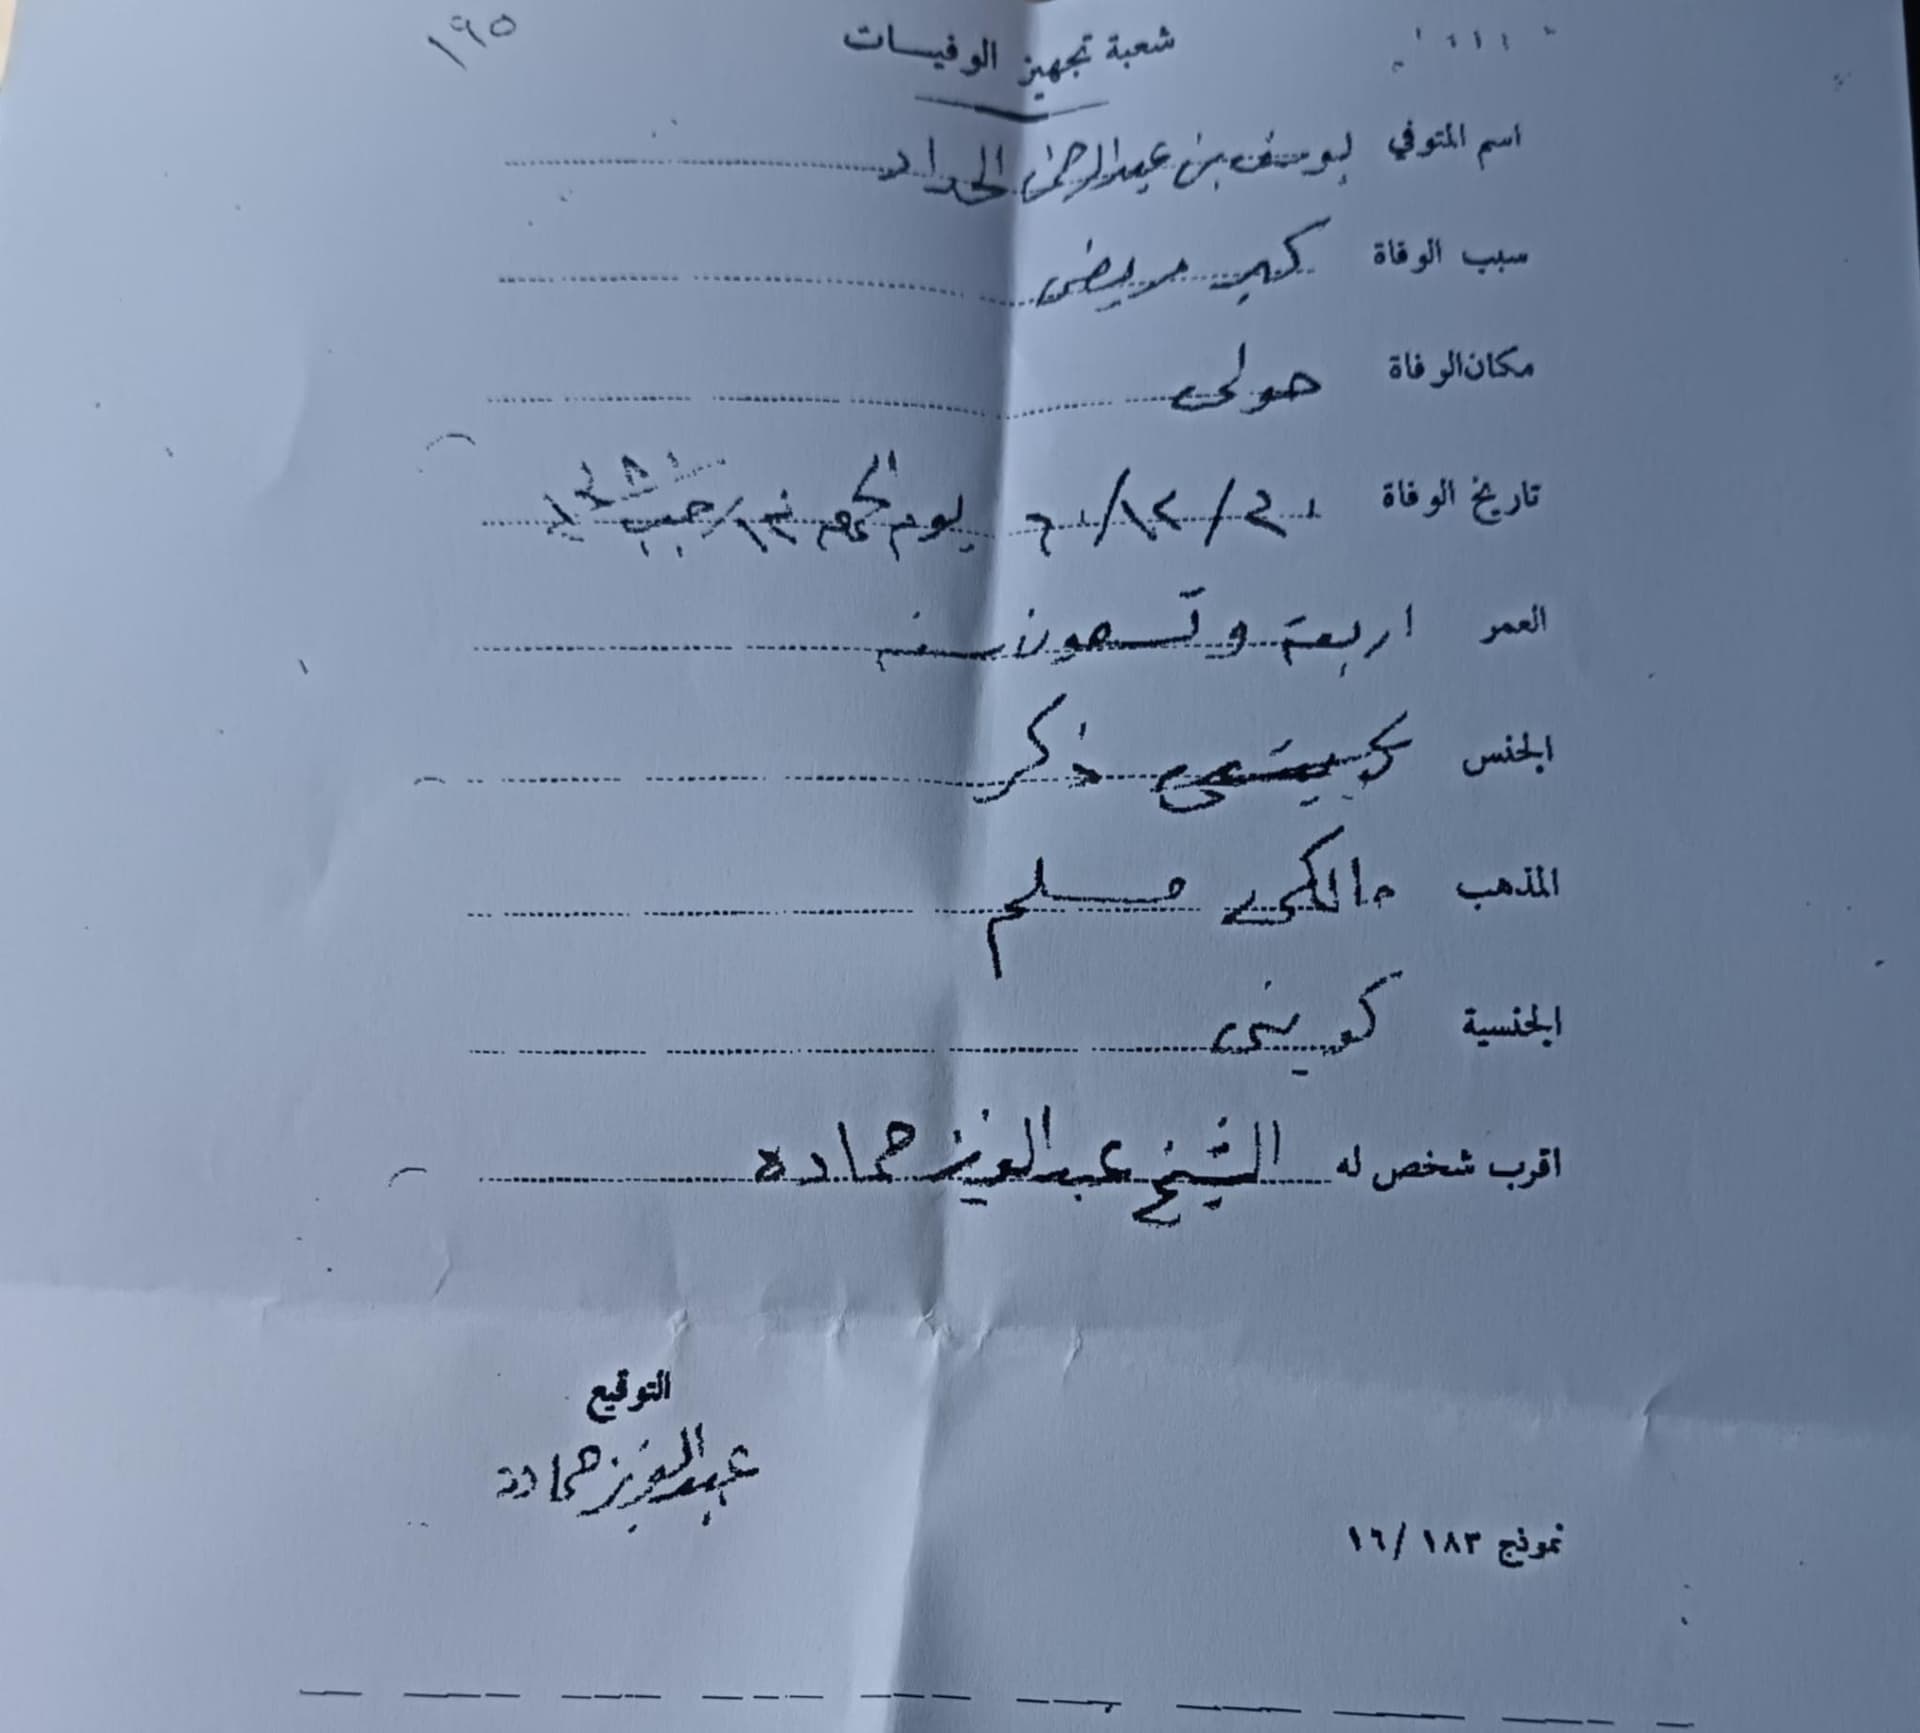 ١٩٥
شعبة تجهيز الوفيات
اسم المتوفي يوسف بن عبدالرحمن الحداد
سبب الوفاة كبير مريض
مكان الوفاة حولى
تاريخ الوفاة يوم رجب
العمر اربعة وتسعون سنه
الجنس ذكر
المذهب مالكي مسلم
الجنسية كويتى
اقرب شخص له الشيخ عبدالعزيز حماده
التوقيع
عبدالعزيز حماده
نموذج ١٨٣/ ١٦